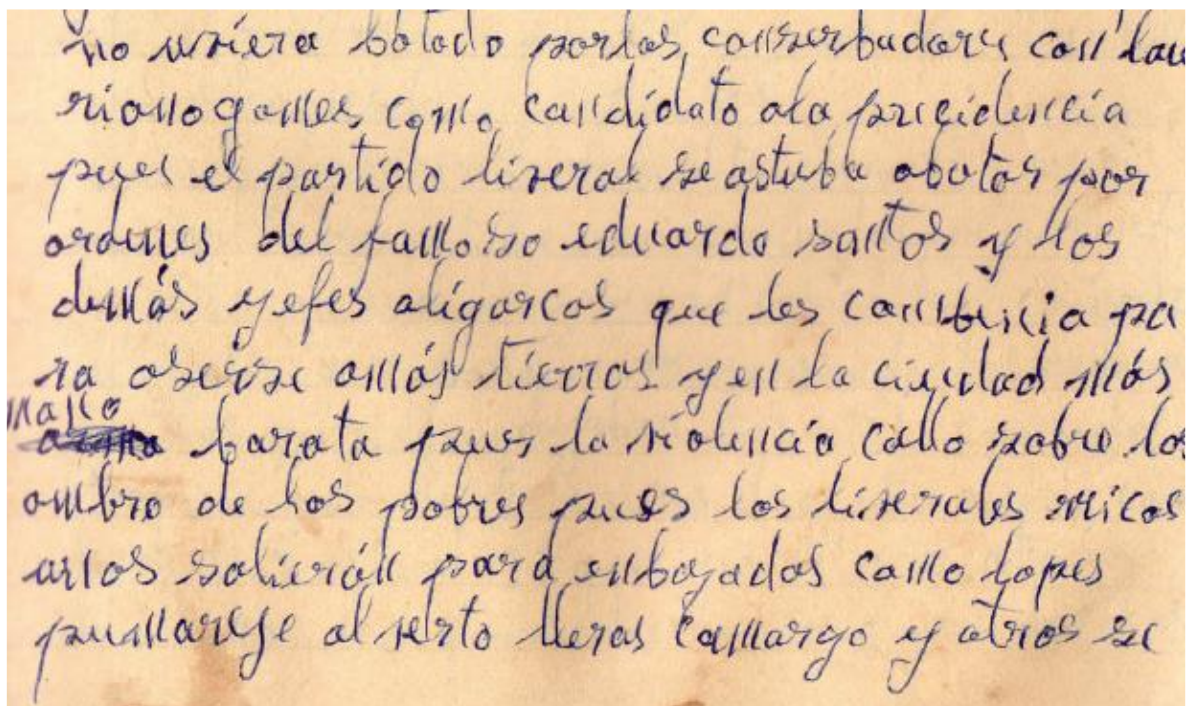 no uviera botado por los conserbadores con lau
rianogomes como candidato ala precidencia
pues el partido liveral se astubo abotar por
ordenes del famoso eduardo santos y los
demás yefes oligarcas que les combenia pa
ra aserse amás tierras y en la ciudad más
mano barata pues la violencia callo sobre los
ombro de los pobres pues los liverales rricos
unos salierón para enbajadas como lopes
pumareje alverto lleras camargo y otros se